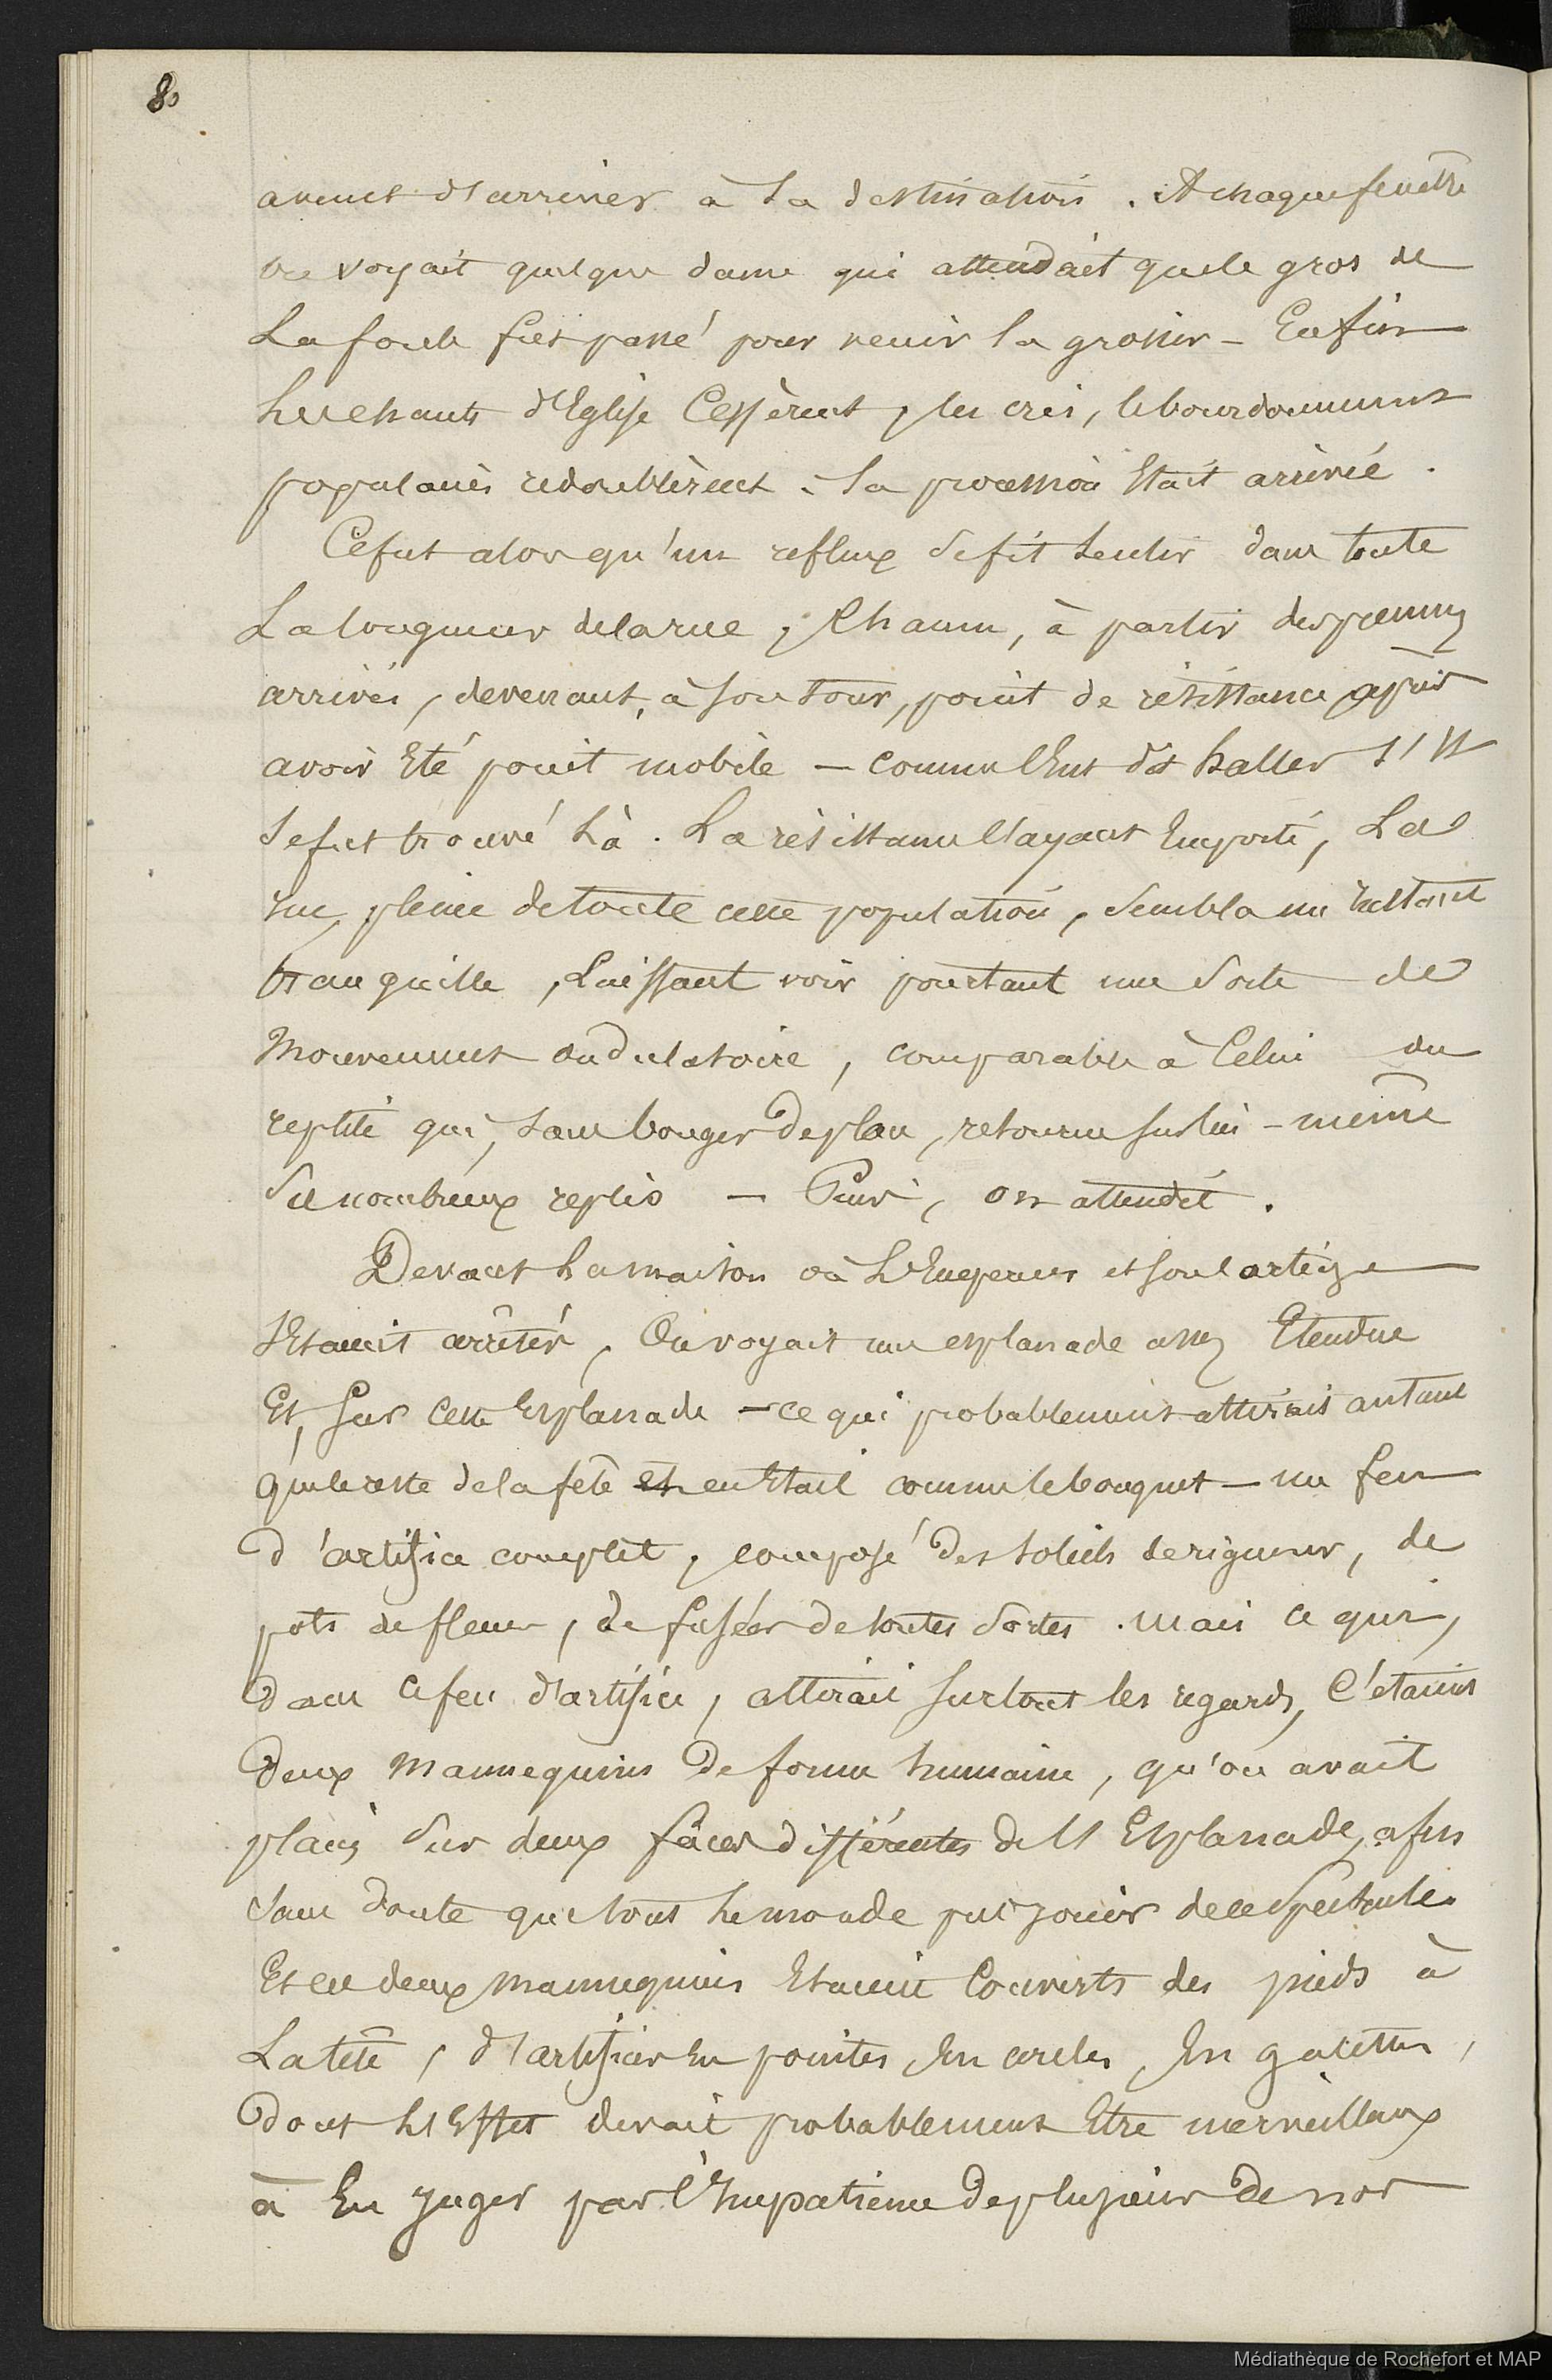 80
avant d'arriver à sa destination. A chaque fenêtre
on voyait quelque dame qui attendait que le gros de
La foule fut passé pour venir la grossir – Enfin
Les chants d'Eglise Cessèrent, les cris, le bourdonnement
populaire redoublèrent. La procession Etait arrivée.
Ce fut alors qu'un reflux se fit sentir dans toute
La longueur de la rue, Chacun, à partir des premiers
arrivés, devenant, à son tour, point de résistance après
avoir Eté point mobile – comme l'Eut dit haller s'il
se fut trouvé là. La résistance l'ayant Emporté, La
rue, pleine de toute cette population, sembla un instant
tranquille, Laissant voir pourtant une sorte de
Mouvement ondulatoire, comparable à Celui du
reptile qui, sans bouger de place, retourne sur lui-même
ses nombreux replis – Puis, on attendit.
Devant La maison où L'Empereur et son cortège
s'Etaient arrêtés, On voyait une esplanade assez Etendue
Et, sur cette Esplanade – ce qui probablement attirait autant
que le reste de la fête et en Etait comme le bouquet – un feu
d'artifice complet, composé des soleils de rigueur, de
pots de fleurs, de fusées de toutes sortes. Mais ce qui,
dans ce feu d'artifice, attirait surtout les regards, C'étaient
Deux Mannequins De forme humaine, qu'on avait
placés sur deux faces différentes de l'Esplanade, afin
sans doute que tout le monde put jouir de ce spectacle.
Et ces deux Mannequins Etaient Couverts des pieds à
La tête, d'artifices En pointes, En cercles, En galettes,
Dont L'Effet devait probablement Etre merveilleux
à En juger par l'Impatience De plusieurs De nos
Médiathèque de Rochefort et MAP